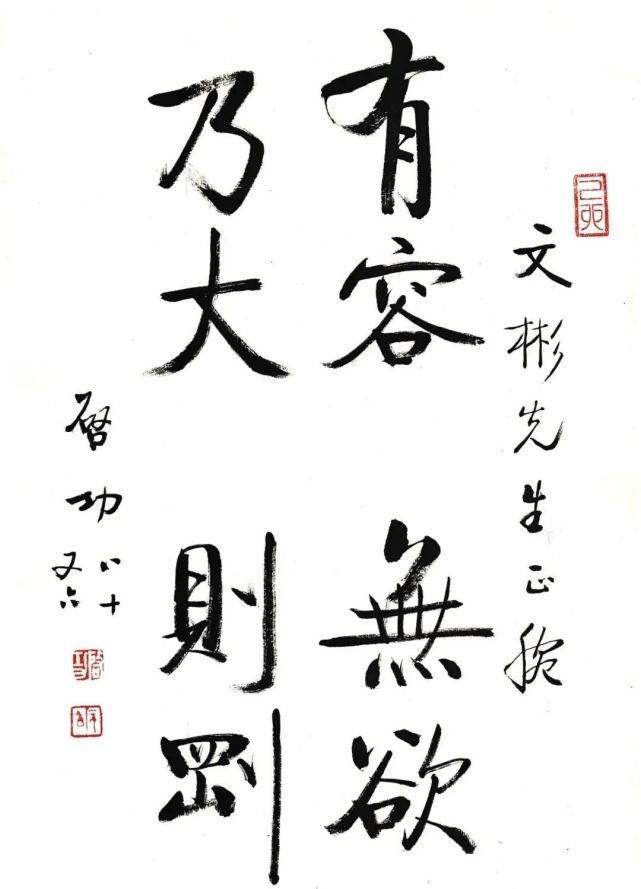 文彬先生正腕
有容
乃大
無欲
則剛
啓功
八十
又六